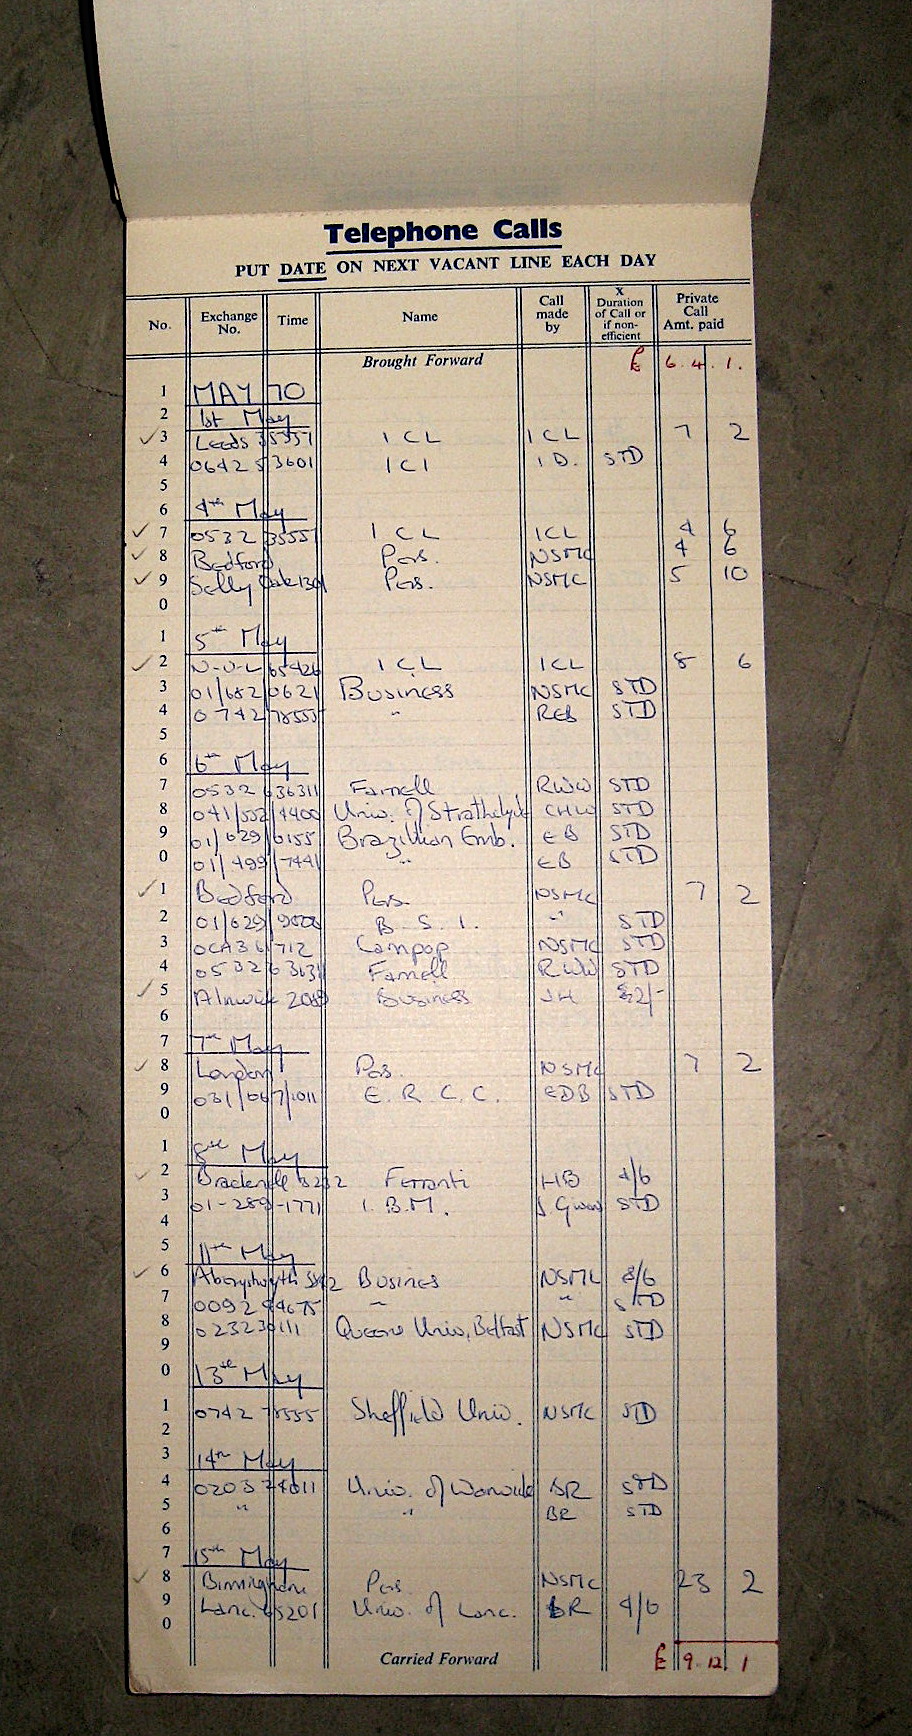 Telephone Calls
PUT DATE ON NEXT VACANT LINE EACH DAY
No. Exchange No. Time Name Call made by X Duration of Call or if non-efficient Private Call Amt. paid
Brought Forward £ 6. 4. 1.
1 MAY 70
2 1st May
✓ 3 Leeds 35551 ICL ICL 7 2
4 0642 53601 ICI I D. STD
5
6 4th May
✓ 7 0532 35551 ICL ICL 4 6
✓ 8 Bedford Pers. NSMC 4 6
✓ 9 Selly Oak 1301 Pers. NSMC 5 10
0
1 5th May
✓ 2 N-U-L 65426 ICL ICL 8 6
3 01/682 0621 Business NSMC STD
4 0742 78555 " REB STD
5
6 6th May
7 0532 636311 Farnell RWW STD
8 041/552/4400 Univ. of Strathclyde CHW STD
9 01/629/0155 Brazillian Emb. EB STD
0 01/499/7441 " EB STD
✓ 1 Bedford Pers NSMC 7 2
2 01/629/9000 B. S. I. " STD
3 0CA36 712 Campop NSMC STD
4 0532 63631 Farnell RWW STD
✓ 5 Alnwick Business JH 2/-
6
7 7th May
✓ 8 London Pers. NSMC 7 2
9 031/667/1011 E. R. C. C. EDB STD
0
1 8th May
✓ 2 Bracknell 3232 Ferranti HB 4/6
3 01-289-1771 I. B.M. STD
4
5 11th May
✓ 6 Aberystwyth Business NSMC 8/6
7 0092 44675 " " STD
8 023230111 Queens Univ, Belfast NSMC STD
9
0 13th May
1 0742 78555 Sheffield Univ. NSMC STD
2
3 14th May
4 0203 74011 Univ. of Warwick BR STD
5 " " BR STD
6
7 15th May
✓ 8 Birmingham Pers NSMC 23 2
9 Lanc. 65201 Univ. of Lanc. BR 4/6
0
Carried Forward £ 9. 12. 1